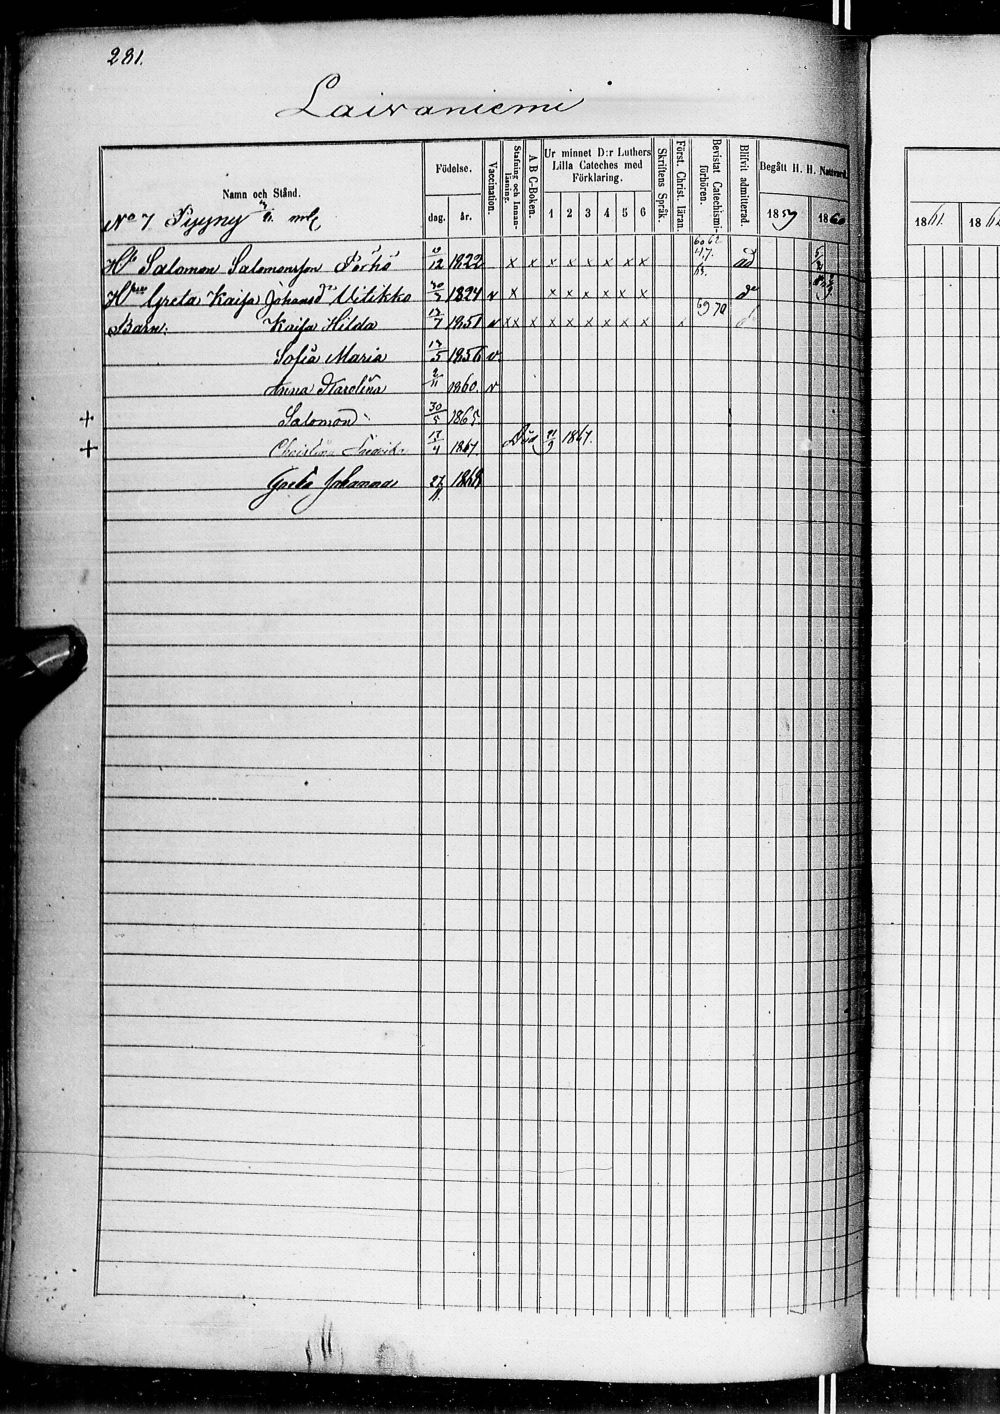 281.
Laivaniemi
Namn och Stånd.
Födelse.
dag.
år.
Vaccination.
Stafning och Innanläsning.
A B C-Boken.
Ur minnet D:r Luthers Lilla Cateches med Förklaring.
1 2 3 4 5 6
Skriftens Språk.
Först. Christ. läran.
Bevistat Catechismiförhören.
Blifvit admitterad.
Begått H. H. Nattvard.
1859 1860 1861
No 7 Pyyny
Salomon Salomonsson 12 1822 x x x x x x x x x ad
Greta Kaisa Johansd:r 1824 v x x x x x x x
Barn: Kaisa Hilda 7 1851 v x x x x x x x x x x 69 70
Sofia Maria 5 1856 v
Anna Karolina 2/11 1860. v
+ Salomon 30/5 1865.
+ Christina 4 1867. Död 9 1867.
Greta Johanna 27/11. 1868